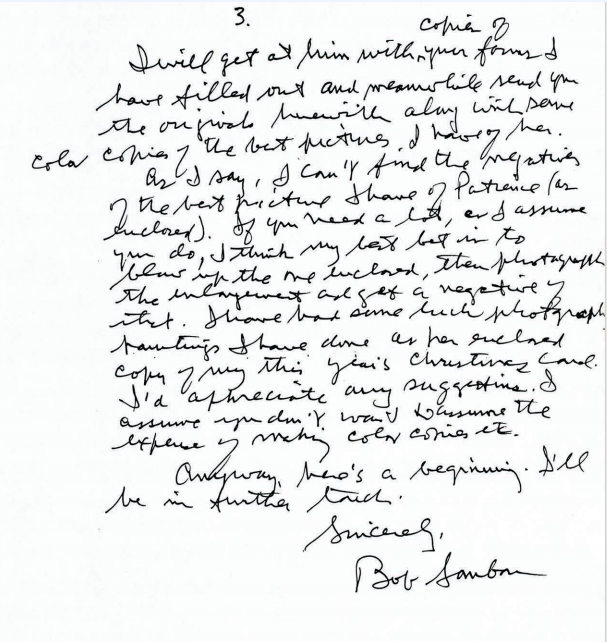 3.
copies of
I will get at him with your forms I
have filled out and meanwhile send you
the originals herewith along with some
color copies of the best pictures I have of her.
As I say, I can't find the negatives
of the best picture I have of Patience (as
enclosed). If you need a lot, as I assume
you do, I think my best bet is to
blow up the one enclosed, then photograph
the enlargement and get a negative of
that. I have had some luck photograph
paintings I have done as per enclosed
copy of my this year's Christmas Card.
I'd appreciate any suggestions. I
assume you don't want to assume the
expense of making color copies etc.
Anyway, here's a beginning. I'll
be in further touch.
Sincerely,
Bob